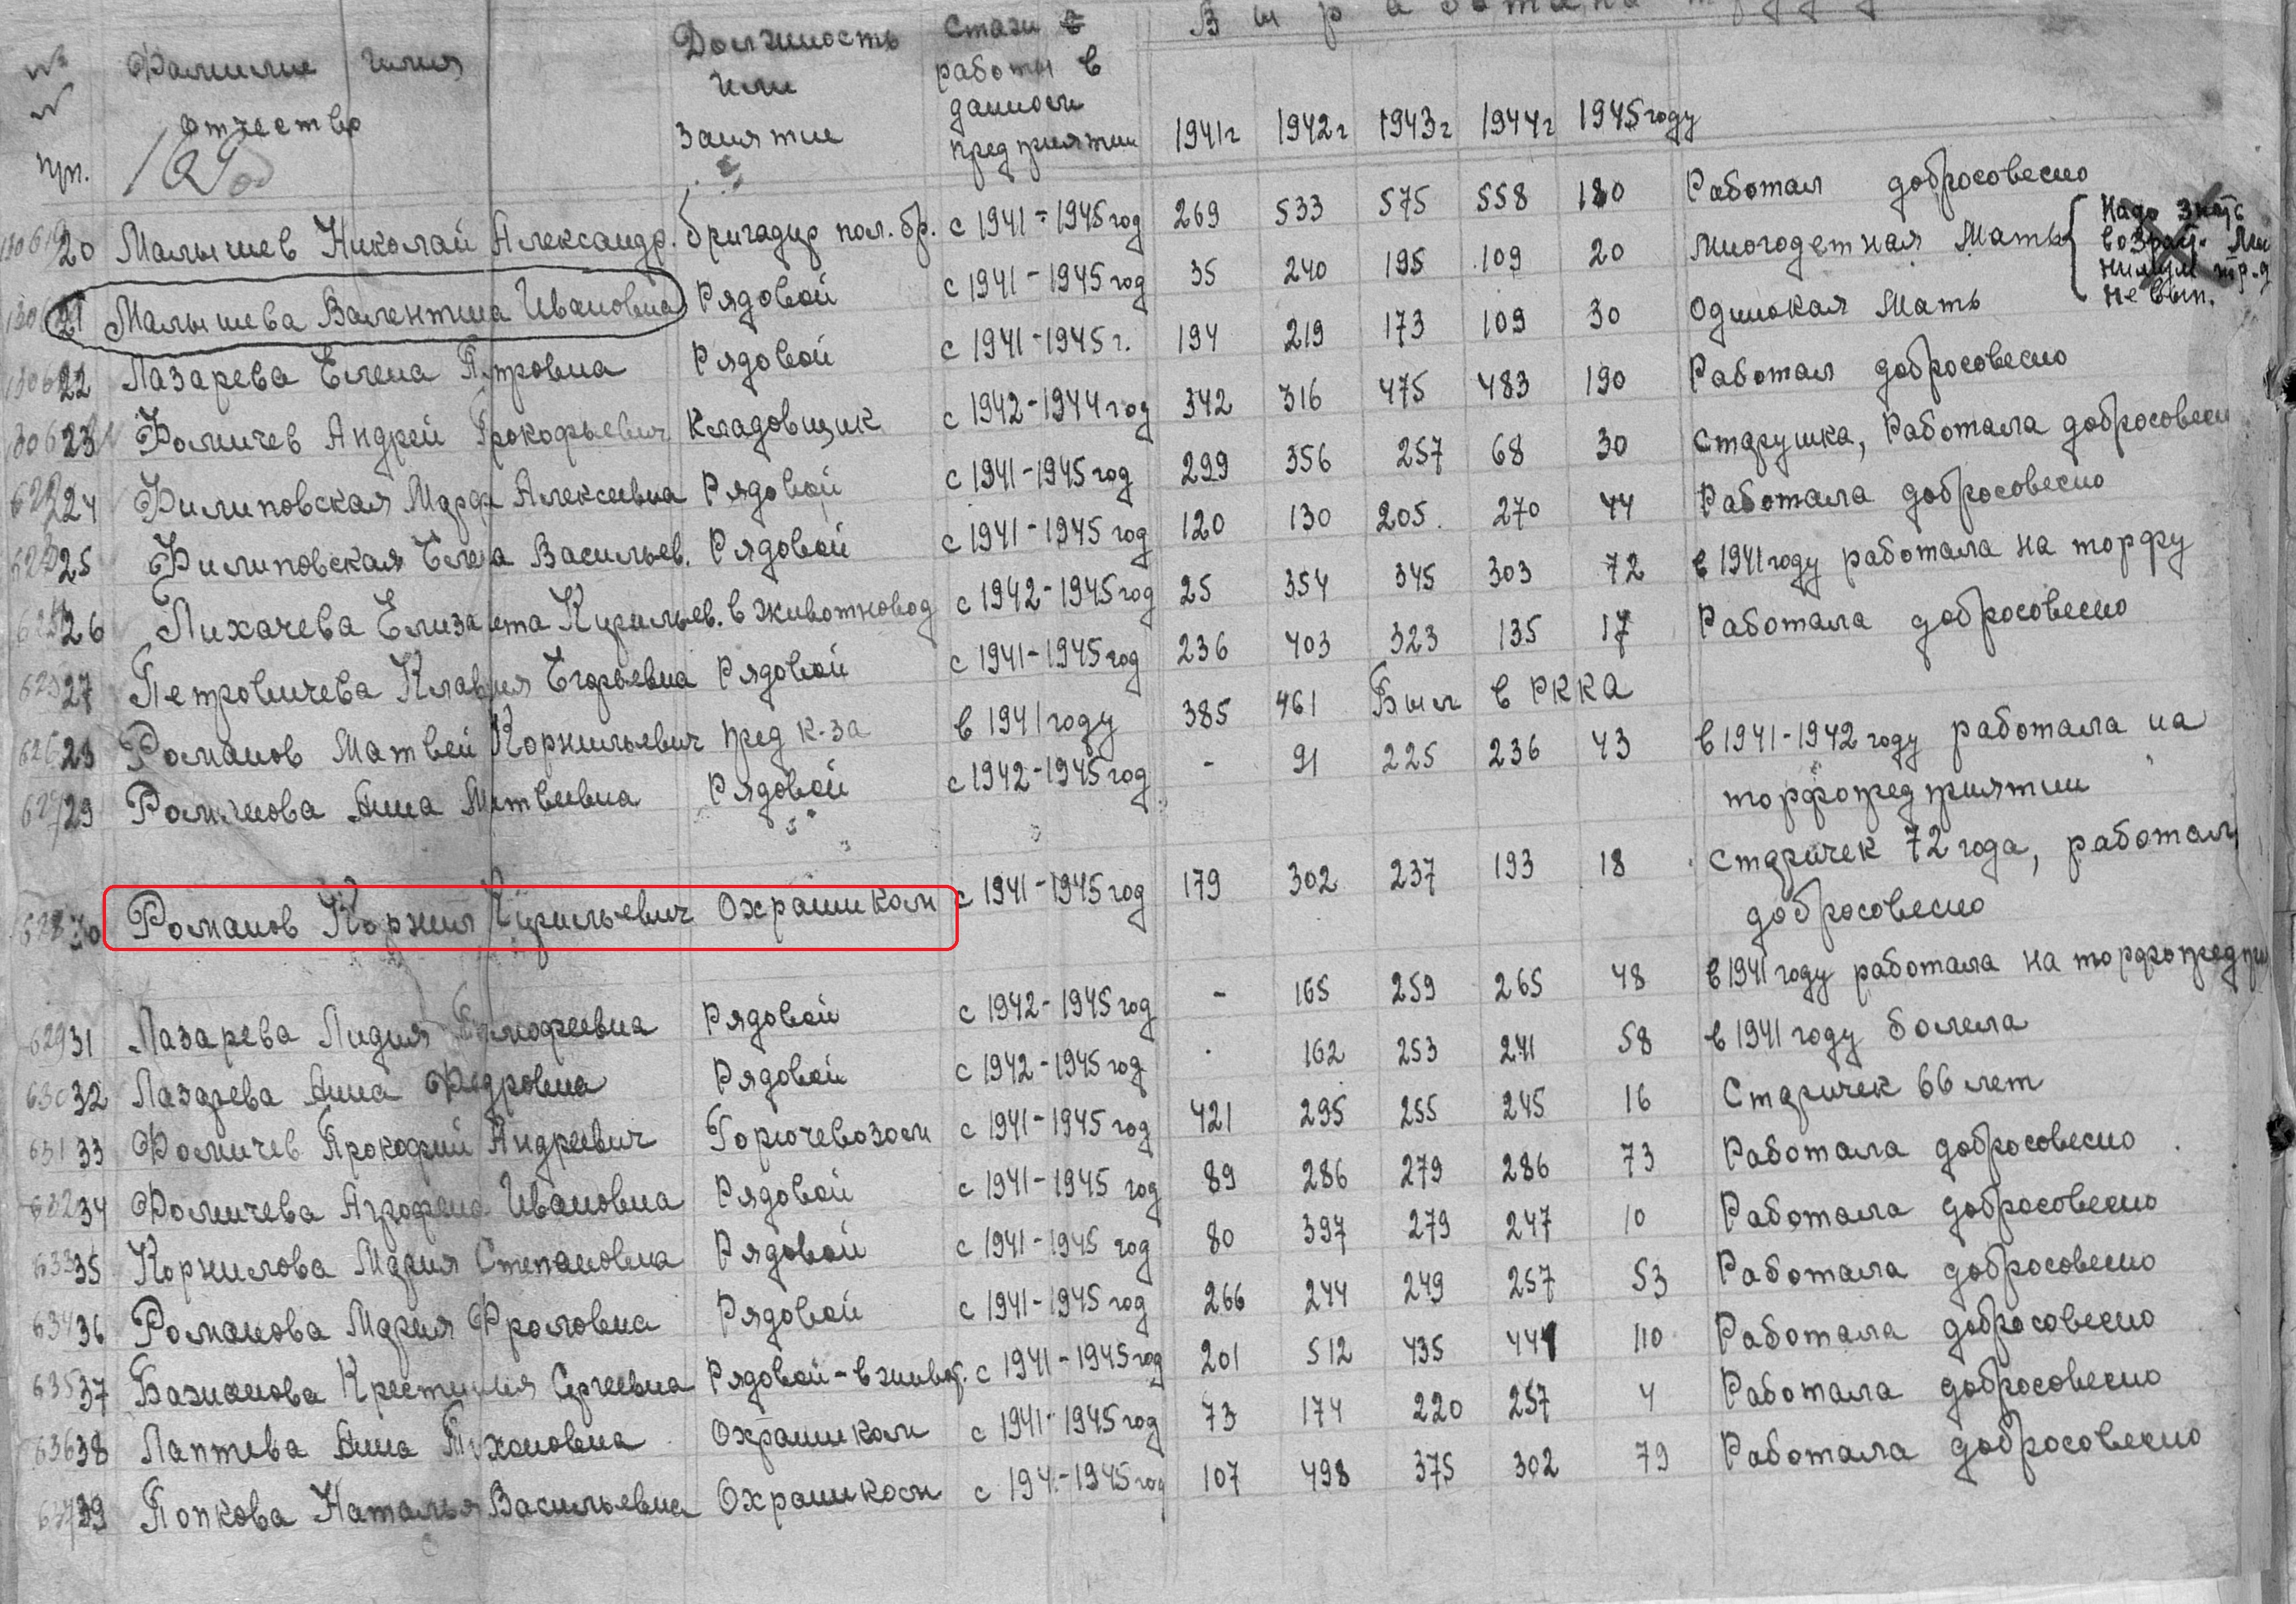 № Фамилие имия Должность Стаж в Выработано труду
№ отчество или работы в
пп. занятие данном
предприятии 1941г 1942г 1943г 1944г 1945 году
20 Малышев Николай Александр. бригадир пол. бр. с 1941-1945 год 269 533 575 558 180 Работал добросовесно
21 Малышева Валентина Ивановна Рядовой с 1941-1945 год 35 240 195 109 20 многодетная Мать Надо знать
возраст. Ми
нимум тр.д
не вып.
22 Лазарева Елена Петровна Рядовой с 1941-1945 г. 194 219 173 109 30 Одинокая Мать
23 Фомичев Андрей Прокофьевич Кладовщик с 1942-1944 год 342 316 475 483 190 Работал добросовесно
24 Филиповская Марфа Алексеевна Рядовой с 1941-1945 год 299 356 257 68 30 Старушка, Работала добросовесн
25 Филиповская Елена Васильев. Рядовой с 1941-1945 год 120 130 205 270 44 Работала добросовесно
26 Лихачева Елизавета Кирильев. в животновод с 1942-1945 год 25 354 345 303 72 в 1941 году работала на торфу
27 Петровичева Клавдия Егорьевна Рядовой с 1941-1945 год 236 403 323 135 17 Работала добросовесно
28 Романов Матвей Корнильевич пред к-за в 1941 году 385 461 Был в РККА
29 Романова Анна Матвеевна Рядовой с 1942-1945 год - 91 225 236 43 в 1941-1942 году работала на
торфопредприятии
30 Романов Корнил Кирильевич Охранником с 1941-1945 год 179 302 237 193 18 старичек 72 года, работал
добросовесно
31 Лазарева Лидия Тимофеевна Рядовой с 1942-1945 год - 165 259 265 48 в 1941 году работала на торфопредпри
32 Лазарева Анна Федровна Рядовой с 1942-1945 год . 162 253 241 58 в 1941 году болела
33 Фомичев Прокофий Андреевич Горючевозом с 1941-1945 год 421 295 255 245 16 Старичек 66 лет
34 Фомичева Агрофена Ивановна Рядовой с 1941-1945 год 89 286 279 286 73 Работала добросовесно
35 Корнилова Мария Степановна Рядовой с 1941-1945 год 80 397 279 247 10 Работала добросовесно
36 Романова Мария Фроловна Рядовой с 1941-1945 год 266 244 249 257 53 Работала добросовесно
37 Бажанова Крестиния Сергеевна Рядовой-в живот. с 1941-1945 год 201 512 435 444 110 Работала добросовесно
38 Лаптева Анна Тихоновна Охранником с 1941-1945 год 73 174 220 257 4 Работала добросовесно
39 Попкова Наталья Васильевна Охранником с 194.-1945 год 107 498 375 302 79 Работала добросовесно